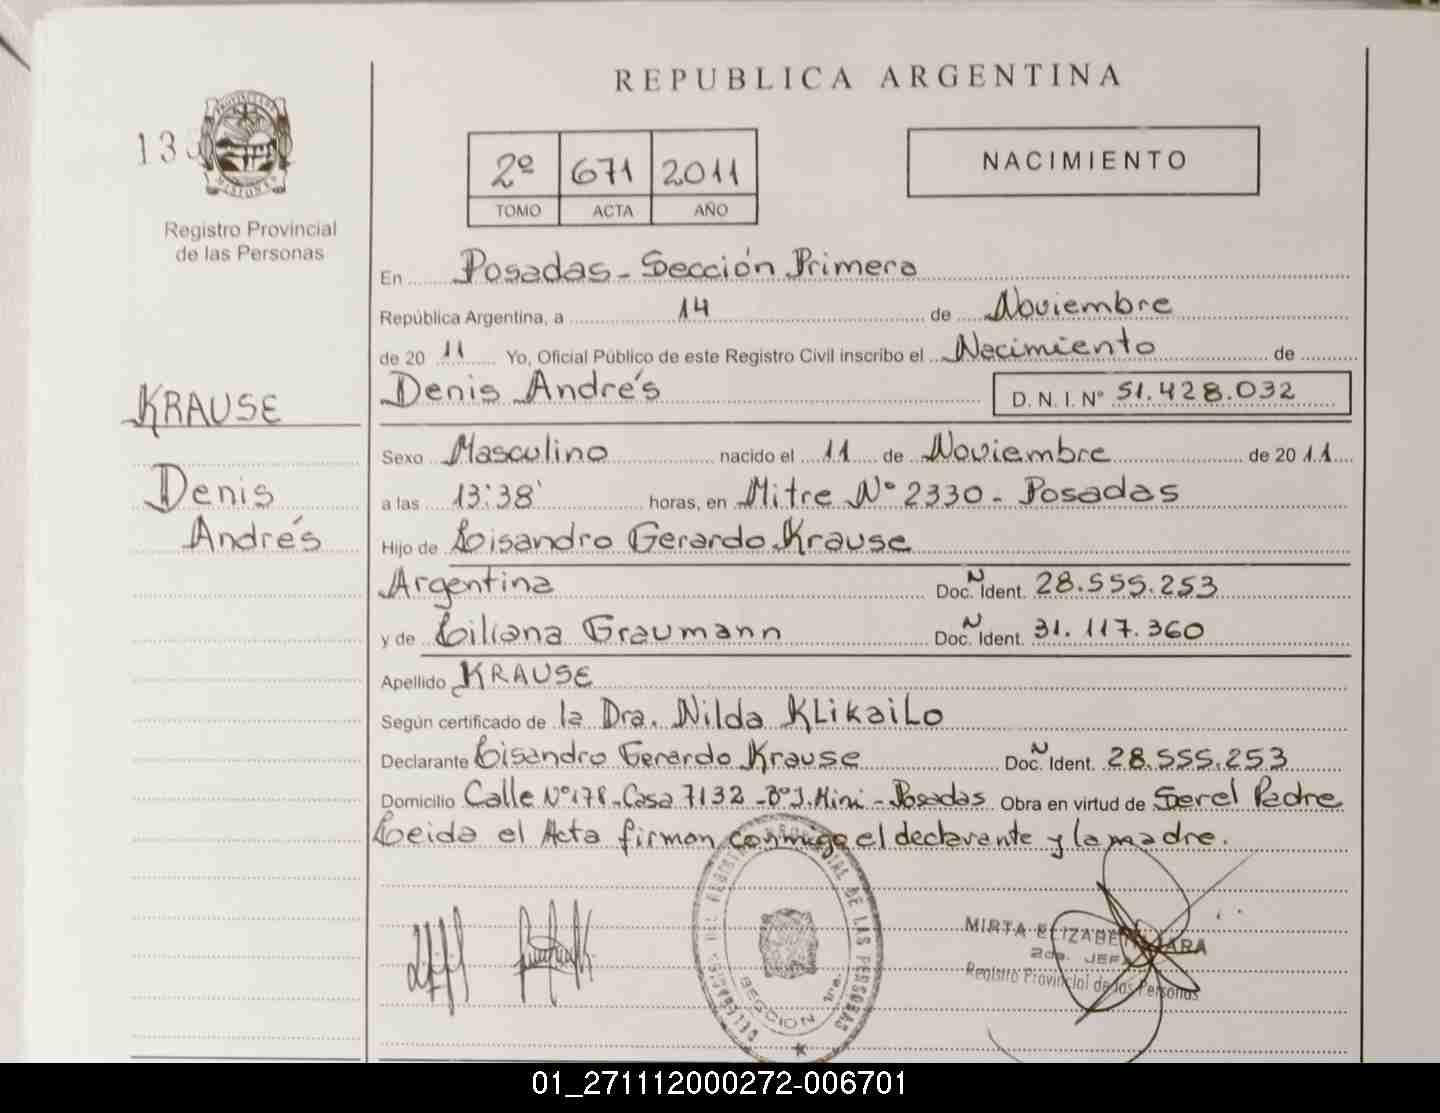 REPUBLICA ARGENTINA
13
MISIONES
Registro Provincial
de las Personas
2º 671 2011
TOMO ACTA AÑO
NACIMIENTO
En Posadas - Sección Primera
República Argentina, a 14 de Noviembre
de 20 11 Yo, Oficial Público de este Registro Civil inscribo el Nacimiento de
Denis Andrés D. N. I. Nº 51.428.032
KRAUSE
Denis
Andrés
Sexo Masculino nacido el 11 de Noviembre de 20 11
a las 13:38' horas, en Mitre Nº 2330 - Posadas
Hijo de Lisandro Gerardo Krause
Argentina Doc. N Ident. 28.555.253
y de Liliana Graumann Doc. N Ident. 31.117.360
Apellido KRAUSE
Según certificado de la Dra. Nilda KLiKaiLo
Declarante Lisandro Gerardo Krause Doc. N Ident. 28.555.253
Domicilio Calle Nº 178 - Casa 7132 - Bº J. Mini - Posadas Obra en virtud de Ser el Padre
Leida el Acta firman conmigo el declarante y la madre.
DE LAS PERSONAS
SECCION 1ra.
MIRTA ELIZABE ARA
2da. JEFA
Registro Provincial de las Personas
01_271112000272-006701